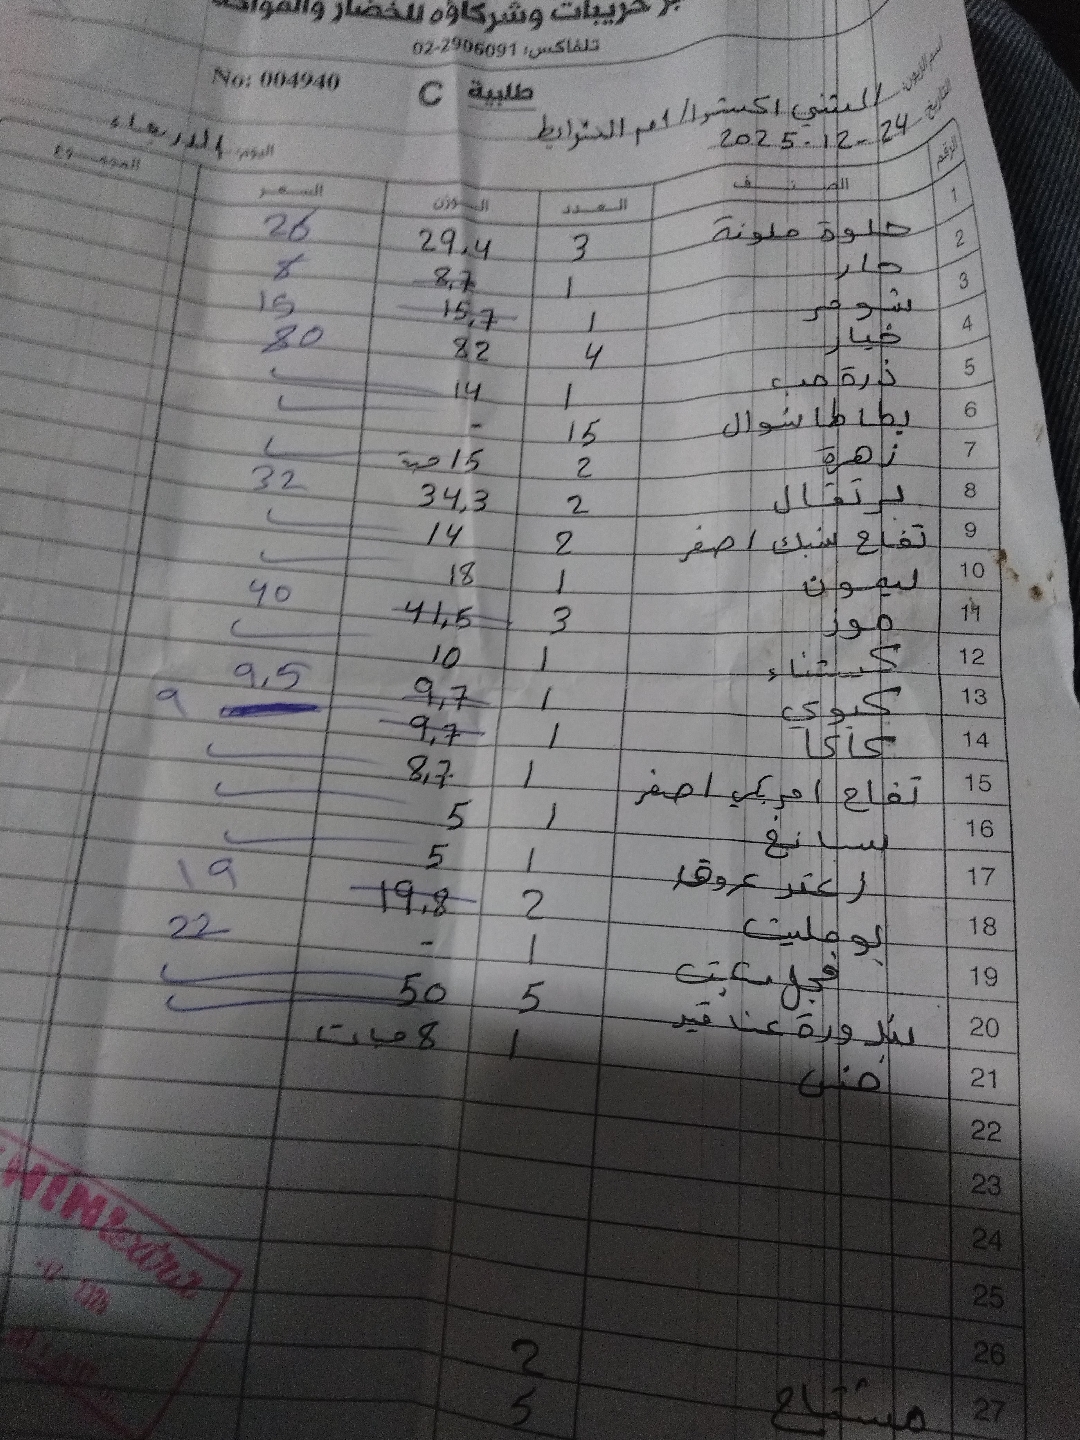 حريبات وشركاؤه للخضار والفواكه
تلفاكس: 02-2906091
No: 004940
طلبية C
الثني اكسترا / ام الشرايط
التاريخ: 24-12-2025
اليوم: الاربعاء
الرقم الصنف العدد الوزن السعر المجموع
1 حلوة ملونة 3 29,4 26
2 حار 1 8,7 8
3 شومر 1 15,7 15
4 خيار 4 82 80
5 ذرة حب 1 14
6 بطاطا شوال 15 -
7 زهرة 2 15 حبة
8 برتقال 2 34,3 32
9 تفاح شبك اصفر 2 14
10 ليمون 1 18
11 موز 3 41,5 40
12 كستناء 1 10
13 كيوي 1 9,7 9,5
14 كاكا 1 9,7 9
15 تفاح امريكي اصفر 1 8,7
16 سبانخ 1 5
17 زعتر عروق 1 5
18 بومليت 2 19,8 19
19 فجل 1 - 22
20 بندورة عناقيد 5 50
21 خس 1 8 حبات
22
23
24
25
26 2
27 مشتاح 5